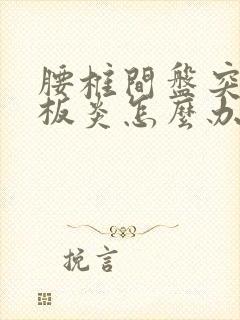 腰柱間盤突
板炎怎麼办
挽言